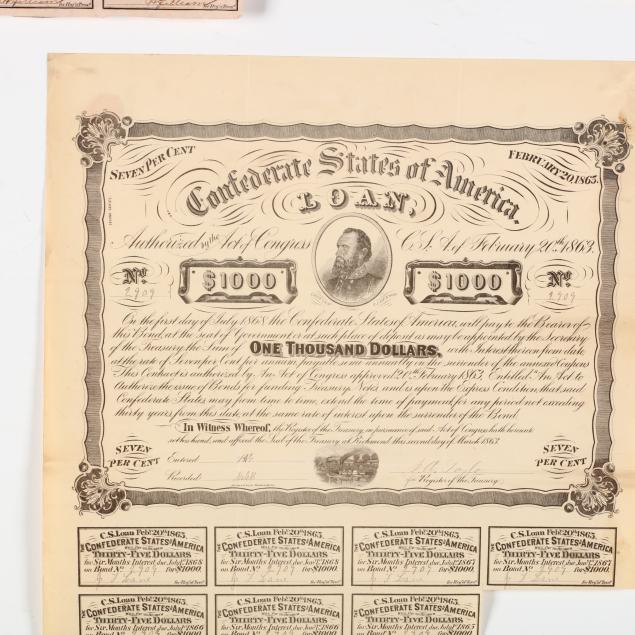 for Reg'r Treas'
for Reg'r Treas'
SEVEN PER CENT
FEBRUARY 20, 1863.
Confederate States of America.
LOAN,
Authorized by the Act of Congress C.S.A. of February 20th, 1863.
No. $1000 $1000 No.
2909 2909
On the first day of July 1868 the Confederate States of America, will pay to the Bearer of
this Bond, at the seat of Government or at such place of deposit as may be appointed by the Secretary
of the Treasury, the Sum of ONE THOUSAND DOLLARS, with Interest thereon from date
at the rate of Seven per Cent per annum payable semi annually on the surrender of the annexed Coupons
This Contract is authorized by An Act of Congress approved 20th February 1863, Entitled "An Act to
Authorize the issue of Bonds for funding Treasury Notes and is upon the Express Condition, that said
Confederate States may from time to time, extend the time of payment for any period not exceeding
thirty years from this date at the same rate of interest upon the surrender of the Bond.
In Witness Whereof, the Register of the Treasury, in pursuance of said Act of Congress hath hereunto
set his hand, and affixed the Seal of the Treasury at Richmond this second day of March 1863
SEVEN PER CENT
SEVEN PER CENT
Entered
Recorded
for Register of the Treasury
C.S. Loan Feby. 20th 1863.
THE CONFEDERATE STATES OF AMERICA
THIRTY-FIVE DOLLARS
for Six Months Interest due July 1st 1868
on Bond No. 2909 for $1000
for Reg'r Treas'
C.S. Loan Feby. 20th 1863.
THE CONFEDERATE STATES OF AMERICA
THIRTY-FIVE DOLLARS
for Six Months Interest due Jany. 1st 1868
on Bond No. 2909 for $1000
for Reg'r Treas'
C.S. Loan Feby. 20th 1863.
THE CONFEDERATE STATES OF AMERICA
THIRTY-FIVE DOLLARS
for Six Months Interest due July 1st 1867
on Bond No. 2909 for $1000
for Reg'r Treas'
C.S. Loan Feby. 20th 1863.
THE CONFEDERATE STATES OF AMERICA
THIRTY-FIVE DOLLARS
for Six Months Interest due Jany. 1st 1867
on Bond No. 2909 for $1000
for Reg'r Treas'
C.S. Loan Feby. 20th 1863.
THE CONFEDERATE STATES OF AMERICA
THIRTY-FIVE DOLLARS
for Six Months Interest due July 1st 1866
on Bond No. for $1000
C.S. Loan Feby. 20th 1863.
THE CONFEDERATE STATES OF AMERICA
THIRTY-FIVE DOLLARS
for Six Months Interest due Jany. 1st 1866
on Bond No. for $1000
C.S. Loan Feby. 20th 1863.
THE CONFEDERATE STATES OF AMERICA
THIRTY-FIVE DOLLARS
for Six Months Interest due July 1st 1865
on Bond No. for $1000